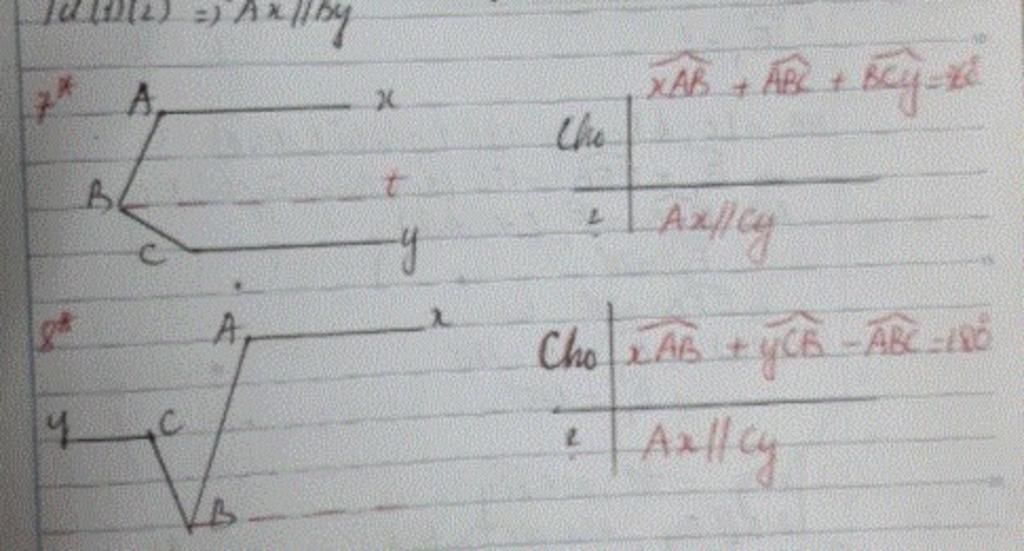 => Ax//By
7*
A x
B t
C y
Cho xAB + ABC + BCy = 360°
? Ax//Cy
8*
A x
y C
B
Cho xAB + yCB - ABC = 180°
? Ax//Cy